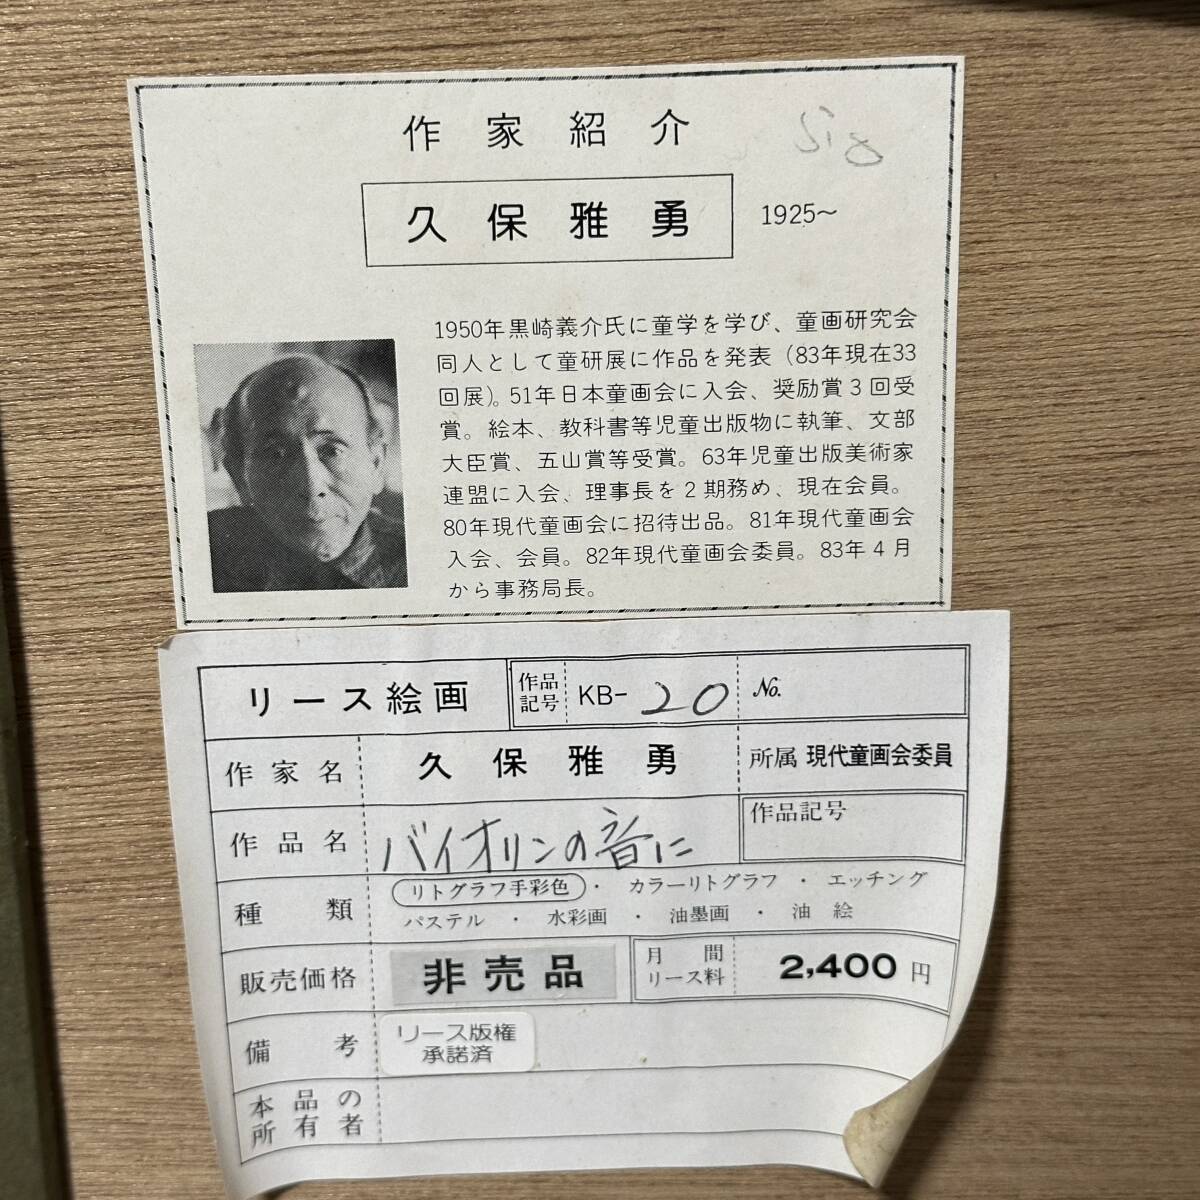 作家紹介
久保雅勇 1925~
1950年黒崎義介氏に童学を学び、童画研究会
同人として童研展に作品を発表(83年現在33
回展)。51年日本童画会に入会、奨励賞3回受
賞。絵本、教科書等児童出版物に執筆、文部
大臣賞、五山賞等受賞。63年児童出版美術家
連盟に入会、理事長を2期務め、現在会員。
80年現代童画会に招待出品。81年現代童画会
入会、会員。82年現代童画会委員。83年4月
から事務局長。
リース絵画 作品記号 KB-20 No.
作家名 久保雅勇 所属 現代童画会委員
作品名 バイオリンの音に 作品記号
種類 リトグラフ手彩色・カラーリトグラフ・エッチング
パステル・水彩画・油墨画・油絵
販売価格 非売品 月間リース料 2,400円
備考 リース版権承諾済
本品の所有者